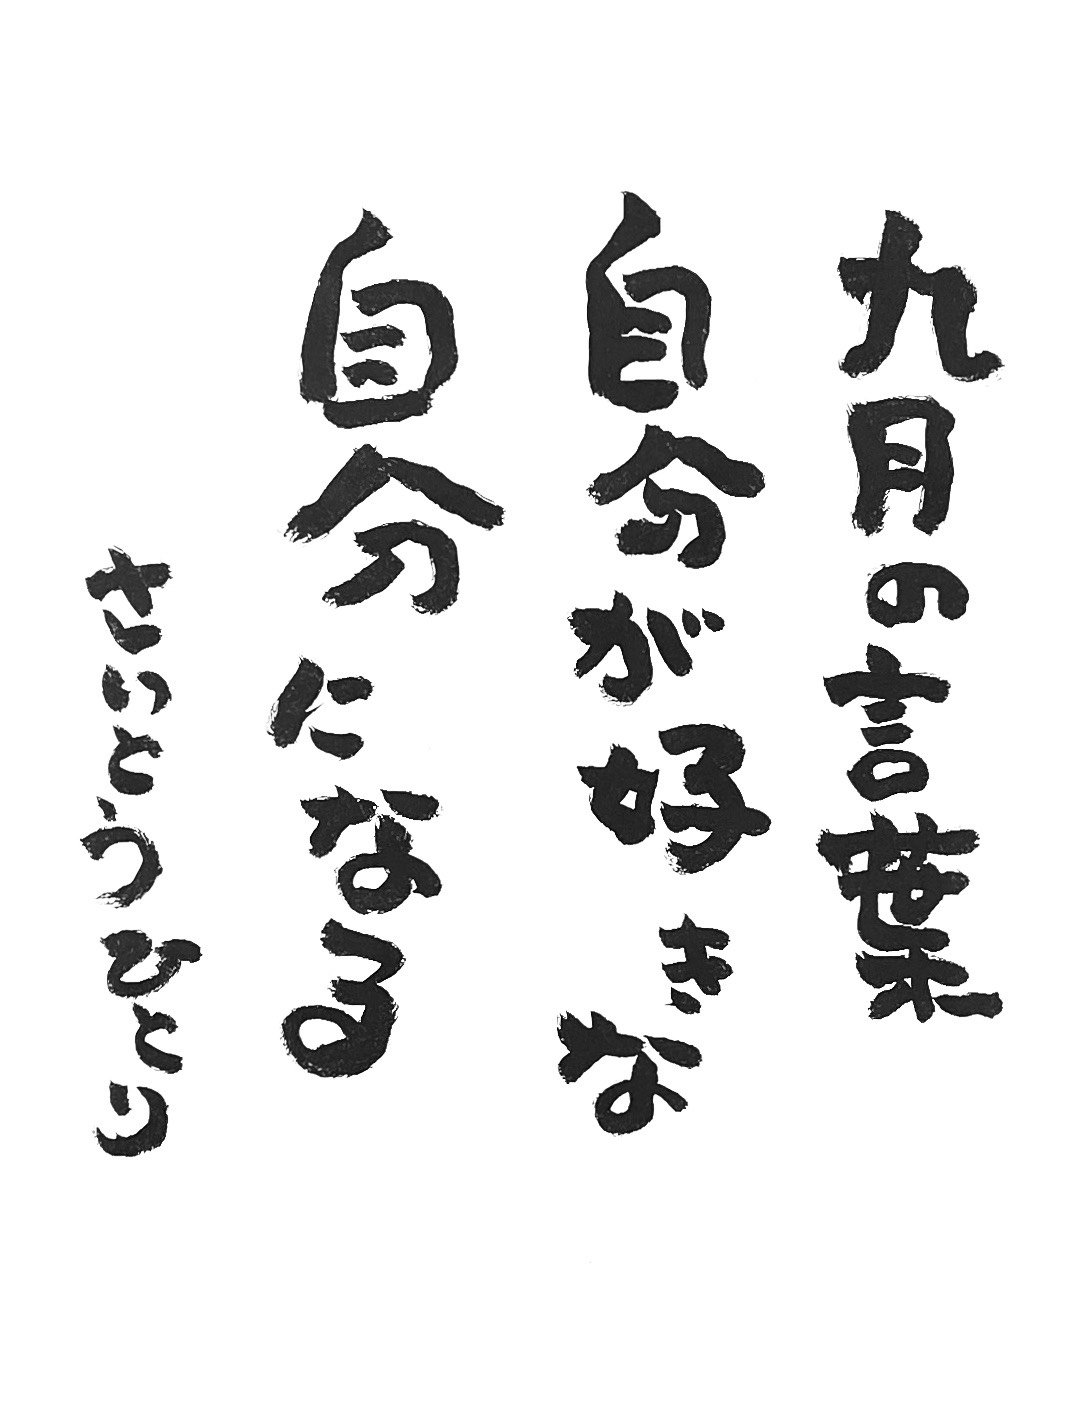 九月の言葉
自分が好きな
自分になる
さいとうひとり